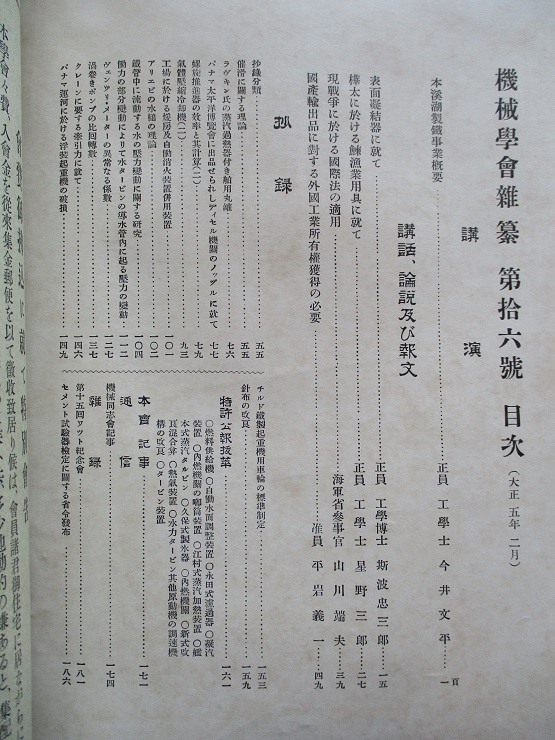 機械學會雜纂 第拾六號 目次 (大正五年二月)
講演
頁
本溪湖製鐵事業概要 正員 工學士 今井文平 一
講話、論説及び報文
表面凝結器に就て 正員 工學博士 斯波忠三郎 一五
樺太に於ける鰊漁業用具に就て 正員 工學士 星野三郎 二七
現戰爭に於ける國際法の適用 海軍省參事官 山川端夫 三九
國產輸出品に對する外國工業所有權獲得の必要 准員 平岩義一 四九
抄錄
抄錄分類 五五
催滑に關する理論 五五
ラヴキン氏の蒸汽過熱器付き舶用丸罐 七六
パナマ太平洋博覽會に出品せられしディセル機關のノッヅルに就て 七七
螺旋推進器の效率と其計算(二) 七九
氣體壓縮冷却機(二) 九三
工場に於ける煖房及自動消火裝置併用裝置 一〇一
アリエビの水槌の理論 一〇二
鐵管中に流動する水の壓力變動に關する研究 一〇四
働力の部分變動によりて水タービンの導水管內に起る壓力の變動 一一二
ヴェンツリ・メーターの異常なる係數 一二七
渦卷きポンプの比回轉數 一三七
クレーンに要する牽引力に就て 一四六
パナマ運河に於ける浮裝起重機の破損 一四九
チルド鐵製起重機用車輪の標準制定 一五三
針布の改良 一五九
特許公報拔萃 一六一
〇燃料供給機 〇自働水面調整裝置 〇永田式濾過器 〇凝汽
裝置 〇內燃機關の唧筒裝置 〇江村式蒸汽加熱裝置 〇艦
本式蒸汽タルビン 〇久保式製氷器 〇內燃機關 〇新式吹
瓦混合弁 〇熱氣裝置 〇水力タービン其他原動機の調速機
構の改良 〇タービン裝置
本會記事 一七一
通信
機械同志會記事 一七四
雜錄
第十五回ワット紀念會 一八一
セメント試驗器檢定に關する省令發布 一八六